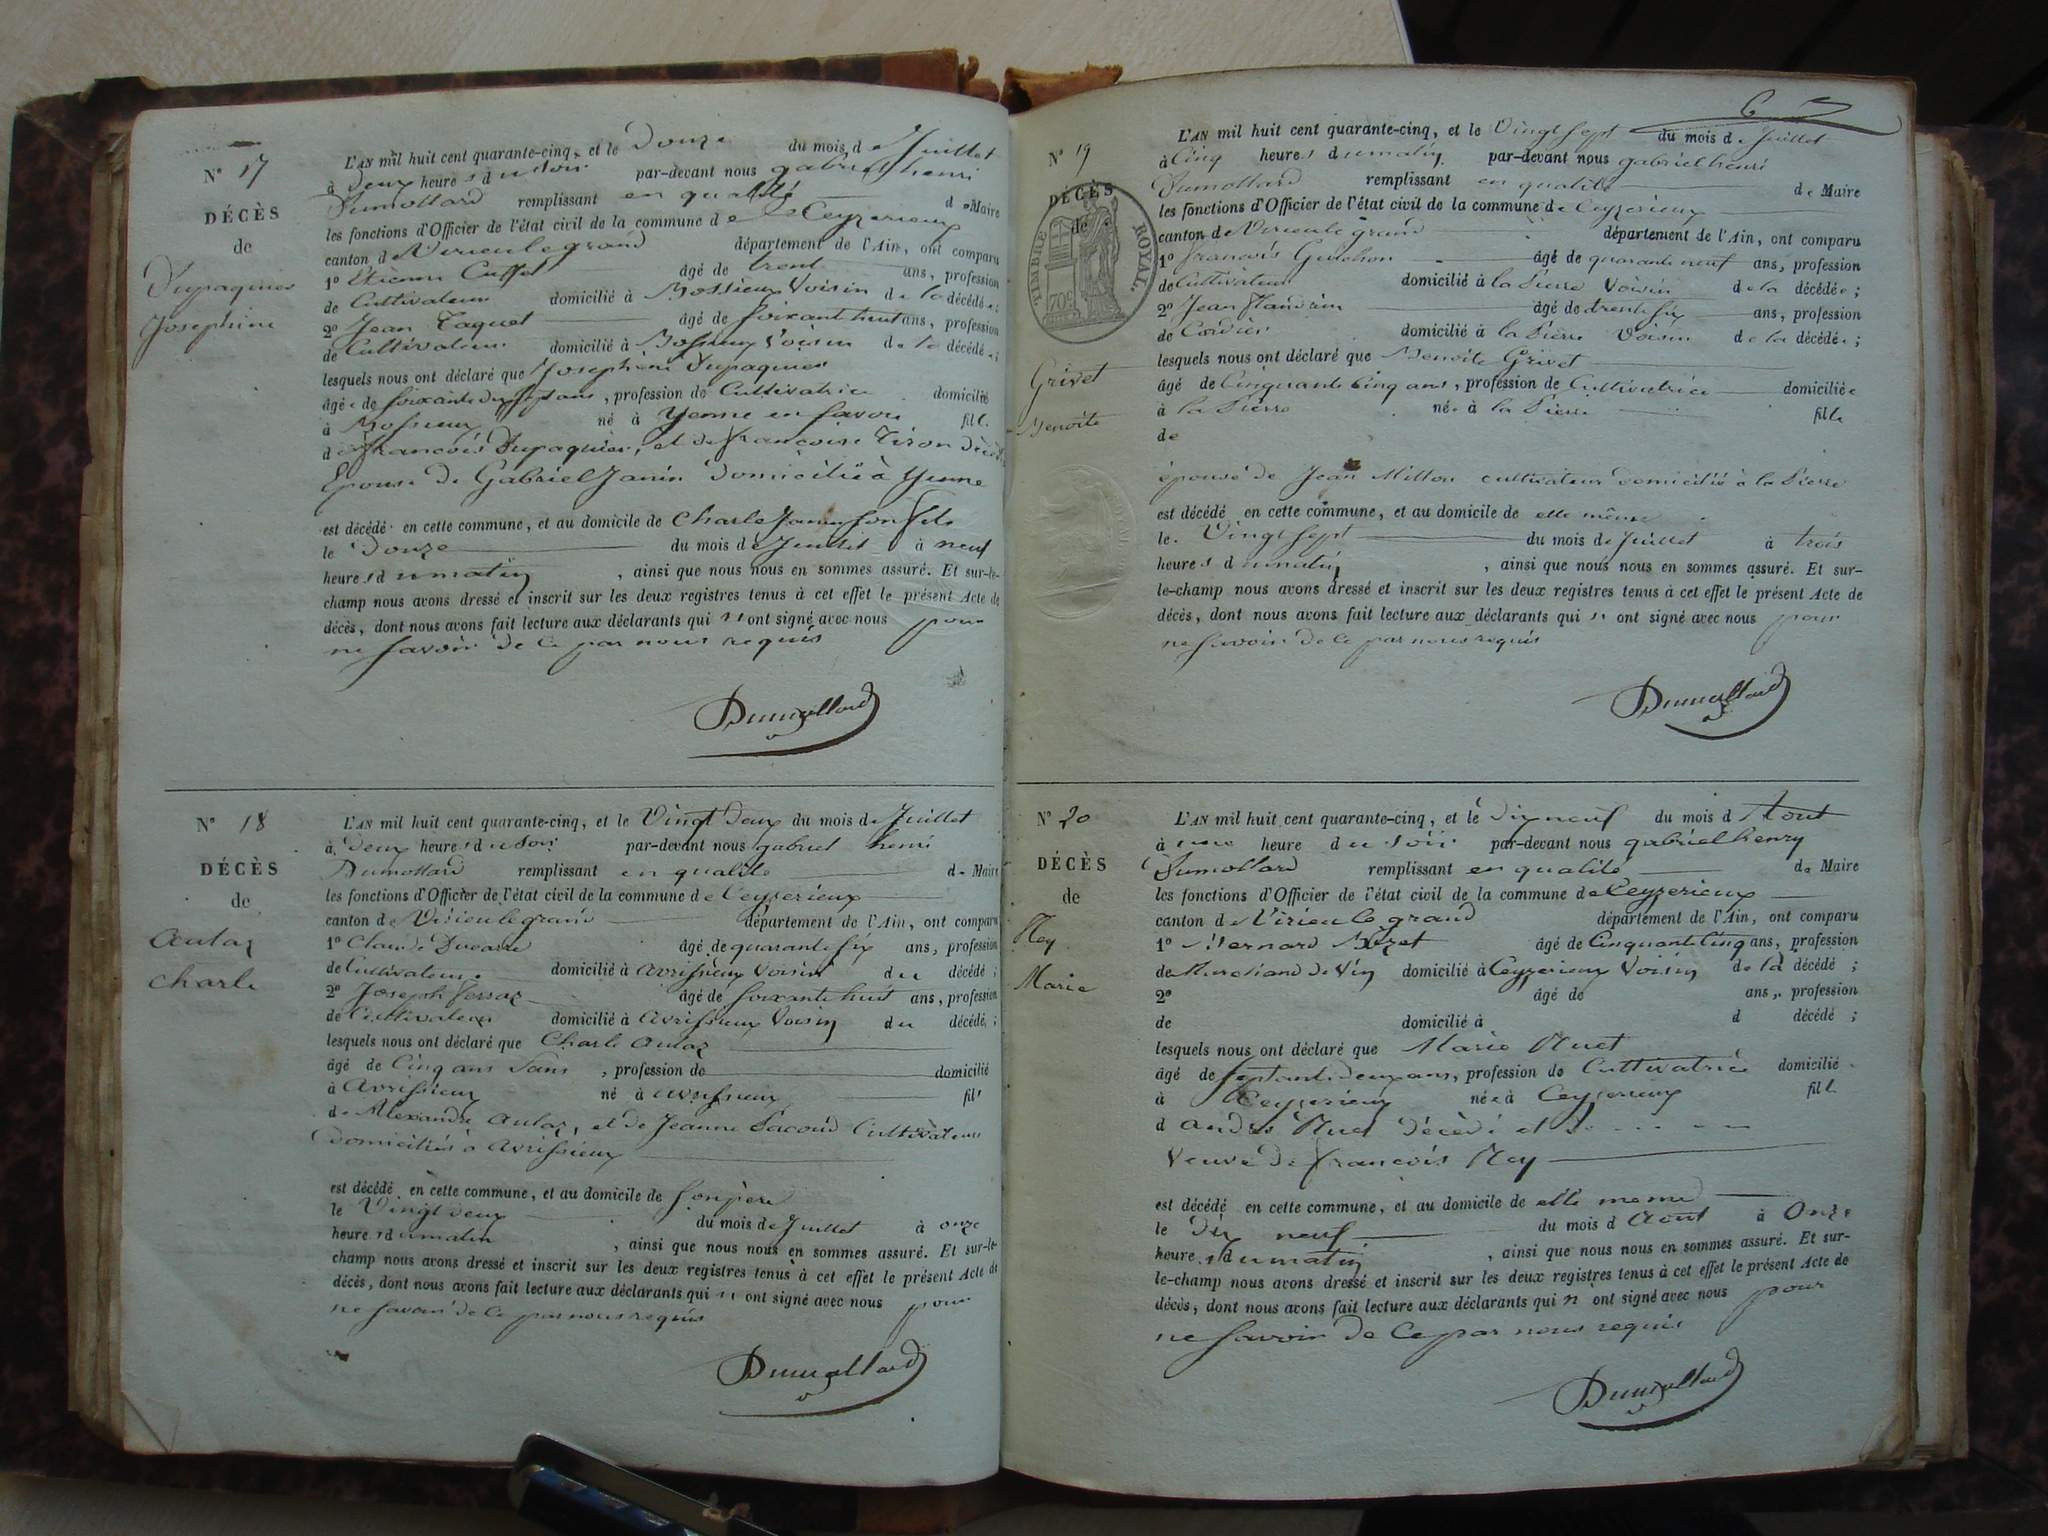 N° 17
DÉCÈS
de
Dupaquier
Josephine
L'AN mil huit cent quarante-cinq, et le Douze du mois de Juillet
à Deux heures du soir par-devant nous gabriel henri
Dumollard remplissant en qualité de Maire
les fonctions d'Officier de l'état civil de la commune de Ceyzerieux
canton de Virieu le grand département de l'Ain, ont comparu
1° Etienne Cuffet âgé de trent ans, profession
de Cultivateur domicilié à Mossieux Voisin de la décédée;
2° Jean Taquet âgé de soixant huit ans, profession
de Cultivateur domicilié à Mossieux Voisin de la décédée;
lesquels nous ont déclaré que Josephine Dupaquier
âgée de soixante dix sept ans, profession de Cultivatrice domicilié
à Mossieux né à Yenne en Savoie fill.
de francois Dupaquier, et de francoise Tiron décéd
Epouse de Gabriel Janin domicilié à Yenne
est décédé en cette commune, et au domicile de Charle Janin son fils
le Douze du mois de Juillet à neuf
heures du matin, ainsi que nous nous en sommes assuré. Et sur-le-
champ nous avons dressé et inscrit sur les deux registres tenus à cet effet le présent Acte de
décès, dont nous avons fait lecture aux déclarants qui n'ont signé avec nous pour
ne savoir de ce par nous requis
Dumollard
N° 18
DÉCÈS
de
Aulaz
Charle
L'AN mil huit cent quarante-cinq, et le Vingt Deux du mois de Juillet
à Deux heures du soir par-devant nous gabriel henri
Dumollard remplissant en qualité de Maire
les fonctions d'Officier de l'état civil de la commune de Ceyzerieux
canton de Virieu le grand département de l'Ain, ont comparu
1° Claude Ducarre âgé de quarante six ans, profession
de Cultivateur domicilié à Avrissieux Voisin du décédé;
2° Joseph âgé de soixante huit ans, profession
de Cultivateur domicilié à Avrissieux Voisin du décédé;
lesquels nous ont déclaré que Charle Aulaz
âgé de Cinq ans Sans, profession de domicilié
à Avrissieux né à Avrissieux fils
de Alexandre Aulaz, et de Jeanne Pacoud Cultivateurs
Domiciliés à Avrissieux
est décédé en cette commune, et au domicile de son père
le Vingt deux du mois de Juillet à onze
heures du matin, ainsi que nous nous en sommes assuré. Et sur-le-
champ nous avons dressé et inscrit sur les deux registres tenus à cet effet le présent Acte de
décès, dont nous avons fait lecture aux déclarants qui n'ont signé avec nous pour
ne savoir de ce par nous requis
Dumollard
6
N° 19
DÉCÈS
de
TIMBRE ROYAL
70c
Grivet
Benoite
L'AN mil huit cent quarante-cinq, et le Vingt sept du mois de Juillet
à Cinq heures du matin par-devant nous gabriel henri
Dumollard remplissant en qualité de Maire
les fonctions d'Officier de l'état civil de la commune de Ceyzerieux
canton de Virieu le grand département de l'Ain, ont comparu
1° francois Guichon âgé de quarante neuf ans, profession
de Cultivateur domicilié à la Pierre Voisin de la décédée;
2° Jean Flandrin âgé de trente six ans, profession
de Cordier domicilié à la Pierre Voisin de la décédée;
lesquels nous ont déclaré que Benoite Grivet
âgé de Cinquante Cinq ans, profession de Cultivatrice domiciliée
à la Pierre née à la Pierre fille
de
épouse de Jean Mitton cultivateur domicilié à la Pierre
est décédé en cette commune, et au domicile de elle même
le Vingt sept du mois de Juillet à trois
heures du matin, ainsi que nous nous en sommes assuré. Et sur-
le-champ nous avons dressé et inscrit sur les deux registres tenus à cet effet le présent Acte de
décès, dont nous avons fait lecture aux déclarants qui n'ont signé avec nous pour
ne savoir de ce par nous requis
Dumollard
N° 20
DÉCÈS
de
Rey
Marie
L'AN mil huit cent quarante-cinq, et le dix neuf du mois d'Aout
à une heure du soir par-devant nous gabriel henry
Dumollard remplissant en qualité de Maire
les fonctions d'Officier de l'état civil de la commune de Ceyzerieux
canton de Virieu le grand département de l'Ain, ont comparu
1° Bernard Bizet âgé de Cinquante Cinq ans, profession
de Marchand de Vin domicilié à Ceyzerieux Voisin de la décédé;
2° âgé de ans, profession
de domicilié à d décédé;
lesquels nous ont déclaré que Marie Ruet
âgé de septante deux ans, profession de Cultivatrice domicilié
à Ceyzerieux née à Ceyzerieux fill.
d André Ruet décédé et de
Veuve de francois Rey
est décédé en cette commune, et au domicile de elle meme
le Dix neuf du mois d Aout à Onze
heures du matin, ainsi que nous nous en sommes assuré. Et sur-
le-champ nous avons dressé et inscrit sur les deux registres tenus à cet effet le présent Acte de
décès, dont nous avons fait lecture aux déclarants qui n ont signé avec nous pour
ne savoir de ce par nous requis
Dumollard